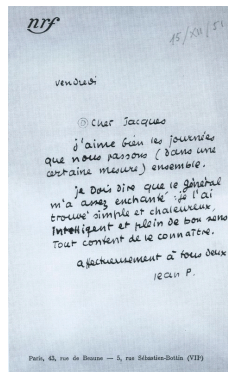 nrf
15/XII/51
vendredi
Cher Jacques
j'aime bien les journées
que nous passons (dans une
certaine mesure) ensemble.
je Dois dire que le général
m'a assez enchanté : je l'ai
trouvé simple et chaleureux,
Intelligent et plein de bon sens
Tout content de le connaître.
affectueusement à tous deux
Jean P.
Paris, 43, rue de Beaune — 5, rue Sébastien-Bottin (VIIe)